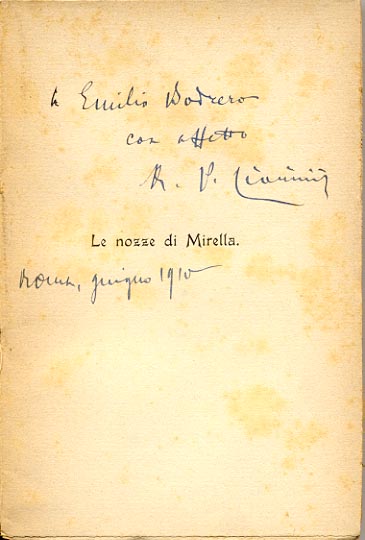 a Emilio Bodrero
con affetto
R. P. Civinini
Le nozze di Mirella.
Roma, giugno 1910